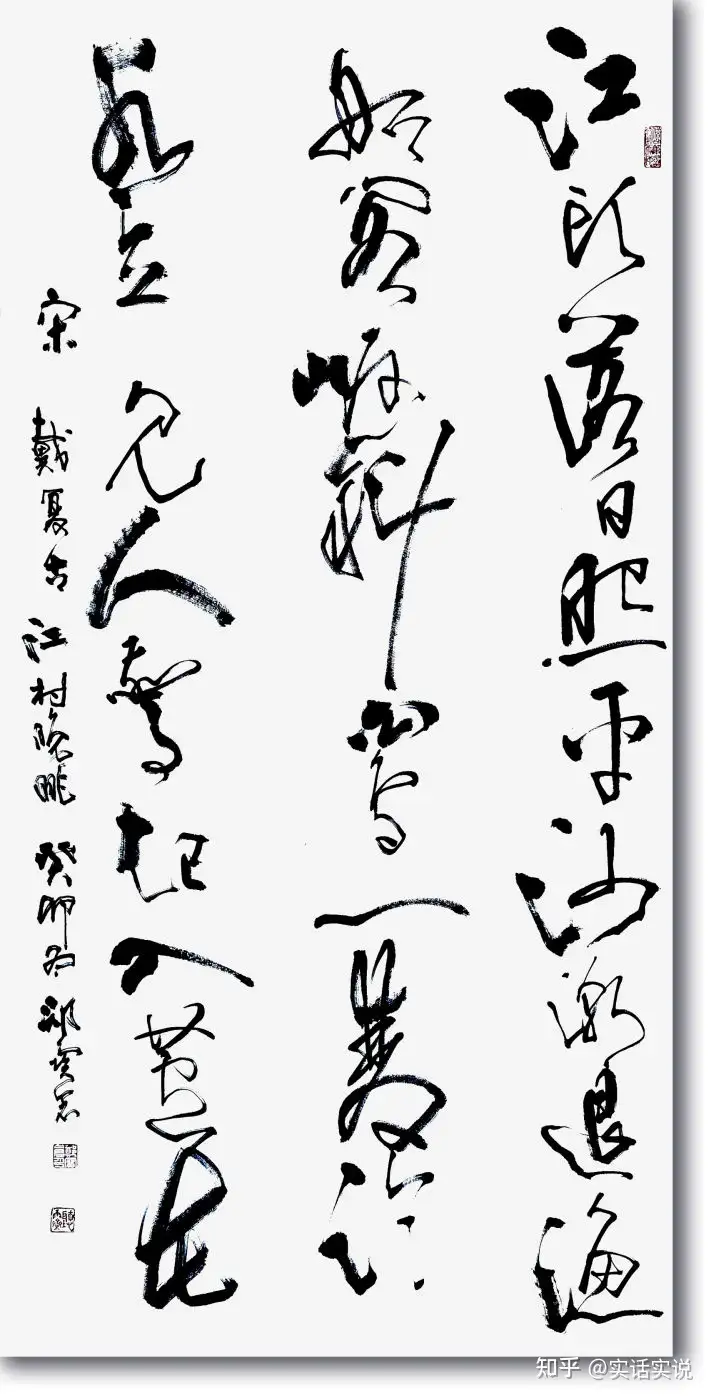 江頭落日照平沙潮退漁
船閣岸斜白鳥一雙臨
水立見人驚起入蘆花
宋 戴复古 江村晚眺 癸卯冬
知乎 @实话实说